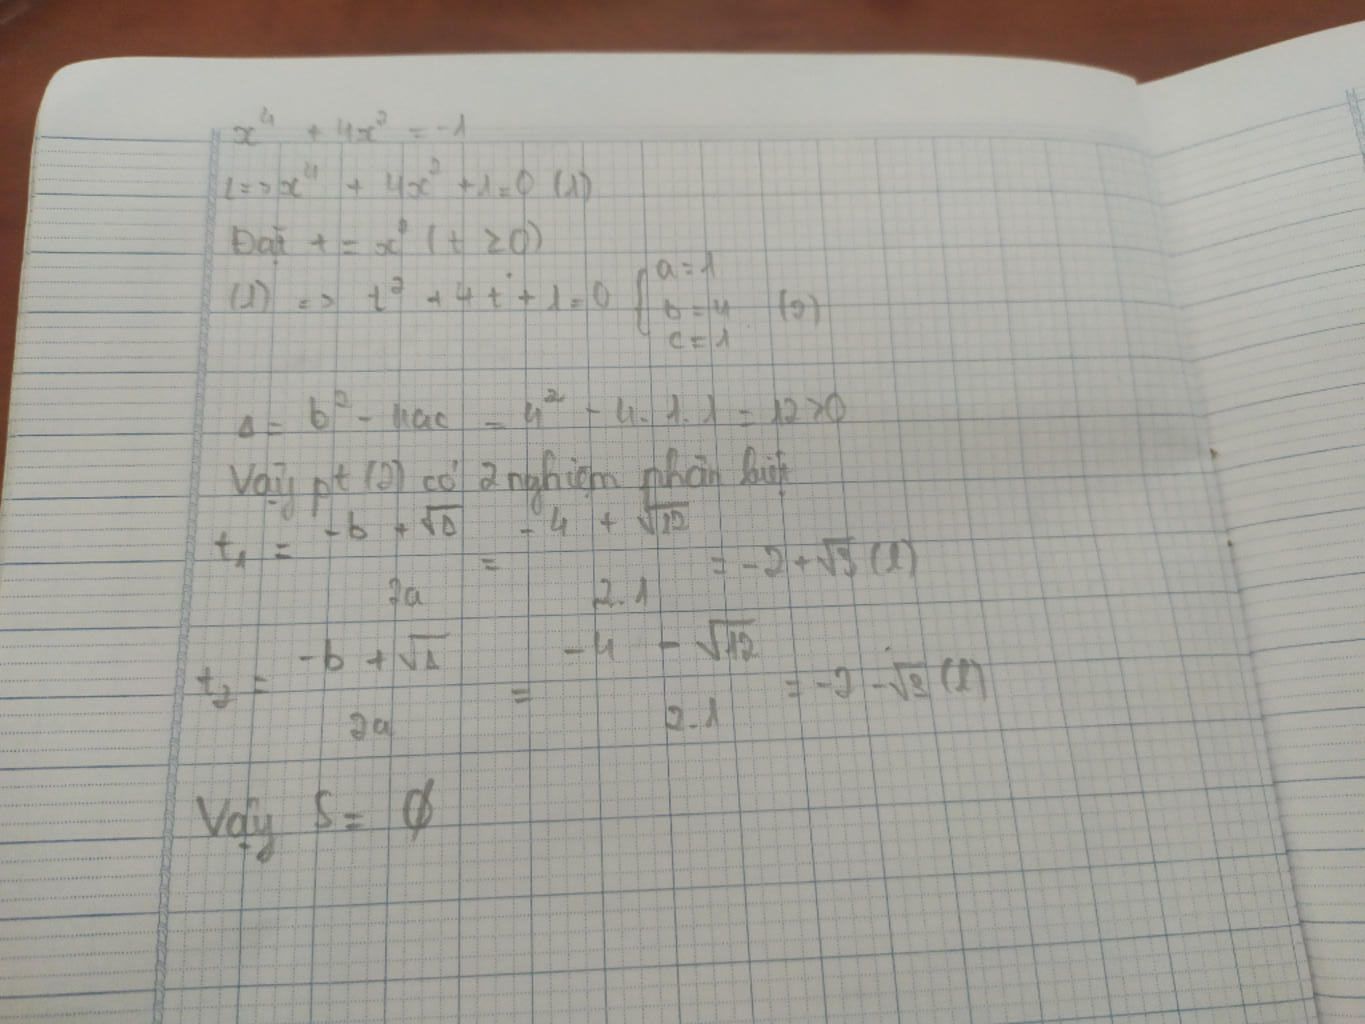 x⁴ + 4x² = -1
<=> x⁴ + 4x² + 1 = 0 (1)
Đặt t = x² (t ≥ 0)
(1) => t² + 4t + 1 = 0 { a = 1 b = 4 c = 1 (2)
Δ = b² - 4ac = 4² - 4.1.1 = 12 > 0
Vậy pt (2) có 2 nghiệm phân biệt
t₁ = (-b + √Δ)/2a = (-4 + √12)/2.1 = -2 + √3 (l)
t₂ = (-b + √Δ)/2a = (-4 - √12)/2.1 = -2 - √3 (l)
Vậy S = ∅